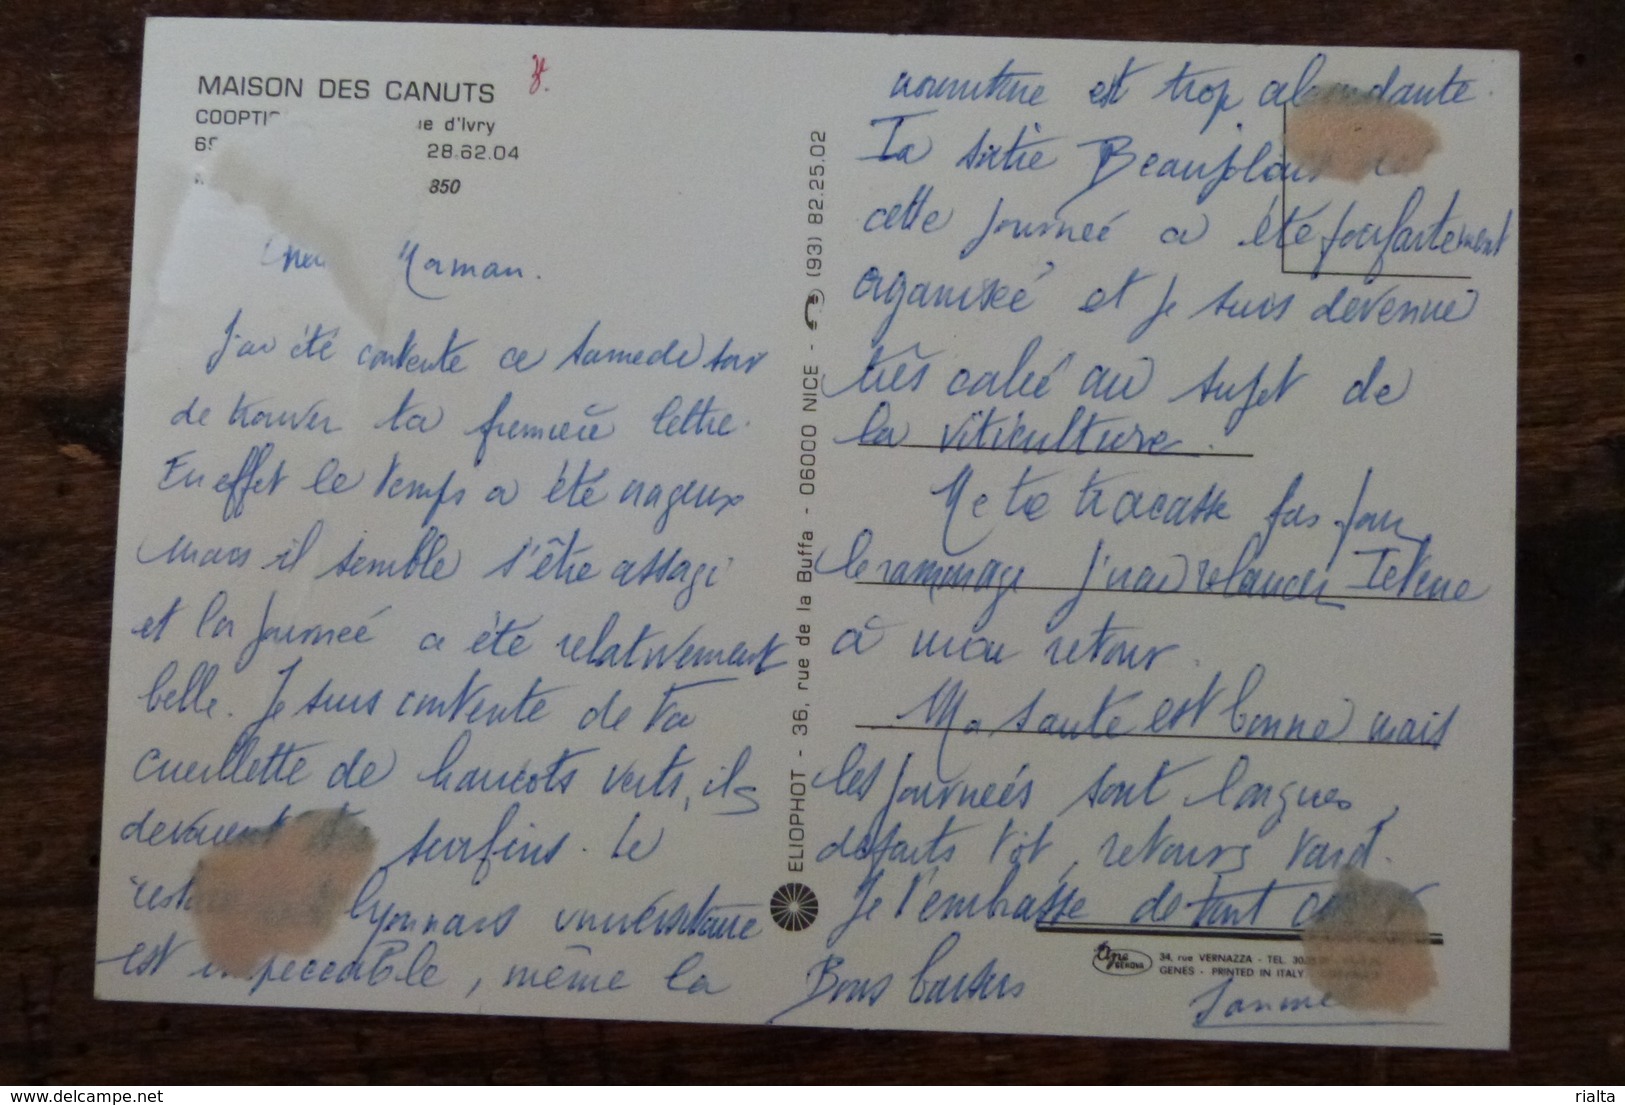 MAISON DES CANUTS
d'Ivry
28.62.04
850
Maman.
J'ai été contente ce samedi soir
de trouver ta première lettre.
En effet le temps a été orageux
mais il semble s'être assagi
et la journée a été relativement
belle. Je suis contente de ta
cueillette de haricots verts, ils
devaient surfins. Le
lyonnais universitaire
est impeccable, même la
ELIOPHOT - 36, rue de la Buffa - 06000 NICE - (93) 82.25.02
nourriture est trop abondante.
La sortie Beaujolais de
cette journée a été parfaitement
organisée et je suis devenue
très calée au sujet de
la viticulture.
Ne te tracasse pas pour
le ramonage j'irai relancer
à mon retour.
Ma santé est bonne mais
les journées sont longues,
départs tôt, retours tard.
Je t'embrasse de tout
Bons baisers
34, rue VERNAZZA - TEL.
GENES - PRINTED IN ITALY